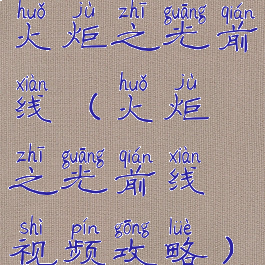 huǒ jù zhī guāng qián
火炬之光前
xiàn huǒ jù
线（火炬
zhī guāng qián xiàn
之光前线
shì pín gōng lüè
视频攻略）